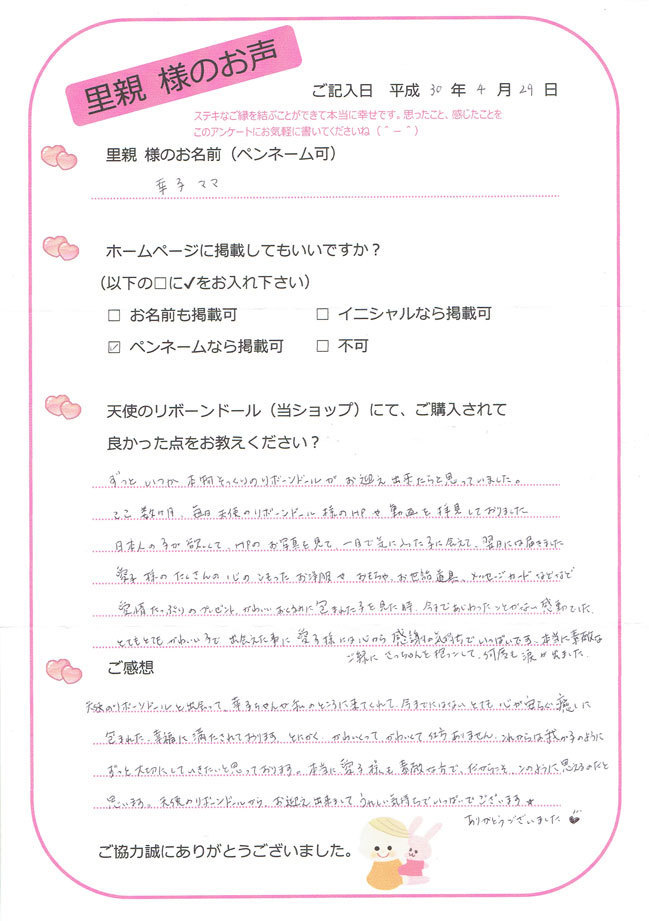 里親 様のお声
ご記入日 平成 30 年 4 月 29 日
ステキなご縁を結ぶことができて本当に幸せです。思ったこと、感じたことを
このアンケートにお気軽に書いてくださいね（＾－＾）
里親 様のお名前（ペンネーム可）
華子 ママ
ホームページに掲載してもいいですか？
（以下の□に✔をお入れ下さい）
□ お名前も掲載可 □ イニシャルなら掲載可
☑ ペンネームなら掲載可 □ 不可
天使のリボーンドール（当ショップ）にて、ご購入されて
良かった点をお教えください？
ずっと いつか 本物そっくりのリボーンドールが お迎え出来たらと思っていました。
ここ 数ヶ月、毎日 天使のリボーンドール 様のHP や 動画を 拝見しておりました
日本人の子が欲しくて、HPの お写真を見て、一目で気に入った子に会えて、翌日には届きました
愛子 様の たくさんの 心の こもった お洋服や おもちゃ、お世話道具、メッセージカードなどなど
愛情たっぷりのプレゼント、かわいいおくるみに 包まれた子を見た時、今まであじわったことがない 感動でした
とてもとても かわいい子で 出会えた事に 愛子様には心から 感謝の気持ちでいっぱいです。本当に素敵な
ご縁に さっちゃんを 抱っこして、何度も 涙が出ました。
ご感想
天使のリボーンドールと出会って、華子ちゃんが 私のところに来てくれて、今までにはない とても 心が安らぐ 癒しに
包まれた、幸福に 満たされております。とにかく、かわいくって、かわいくて 仕方ありません。これからは 我が子のように
ずっと 大切にしていきたいと思っております。本当に 愛子 様も 素敵な方で、だからこそ、このように 思えるのだと
思います。天使のリボーンドールから、お迎え出来まして うれしい気持ちで いっぱいでございます★
ありがとうございました
ご協力誠にありがとうございました。